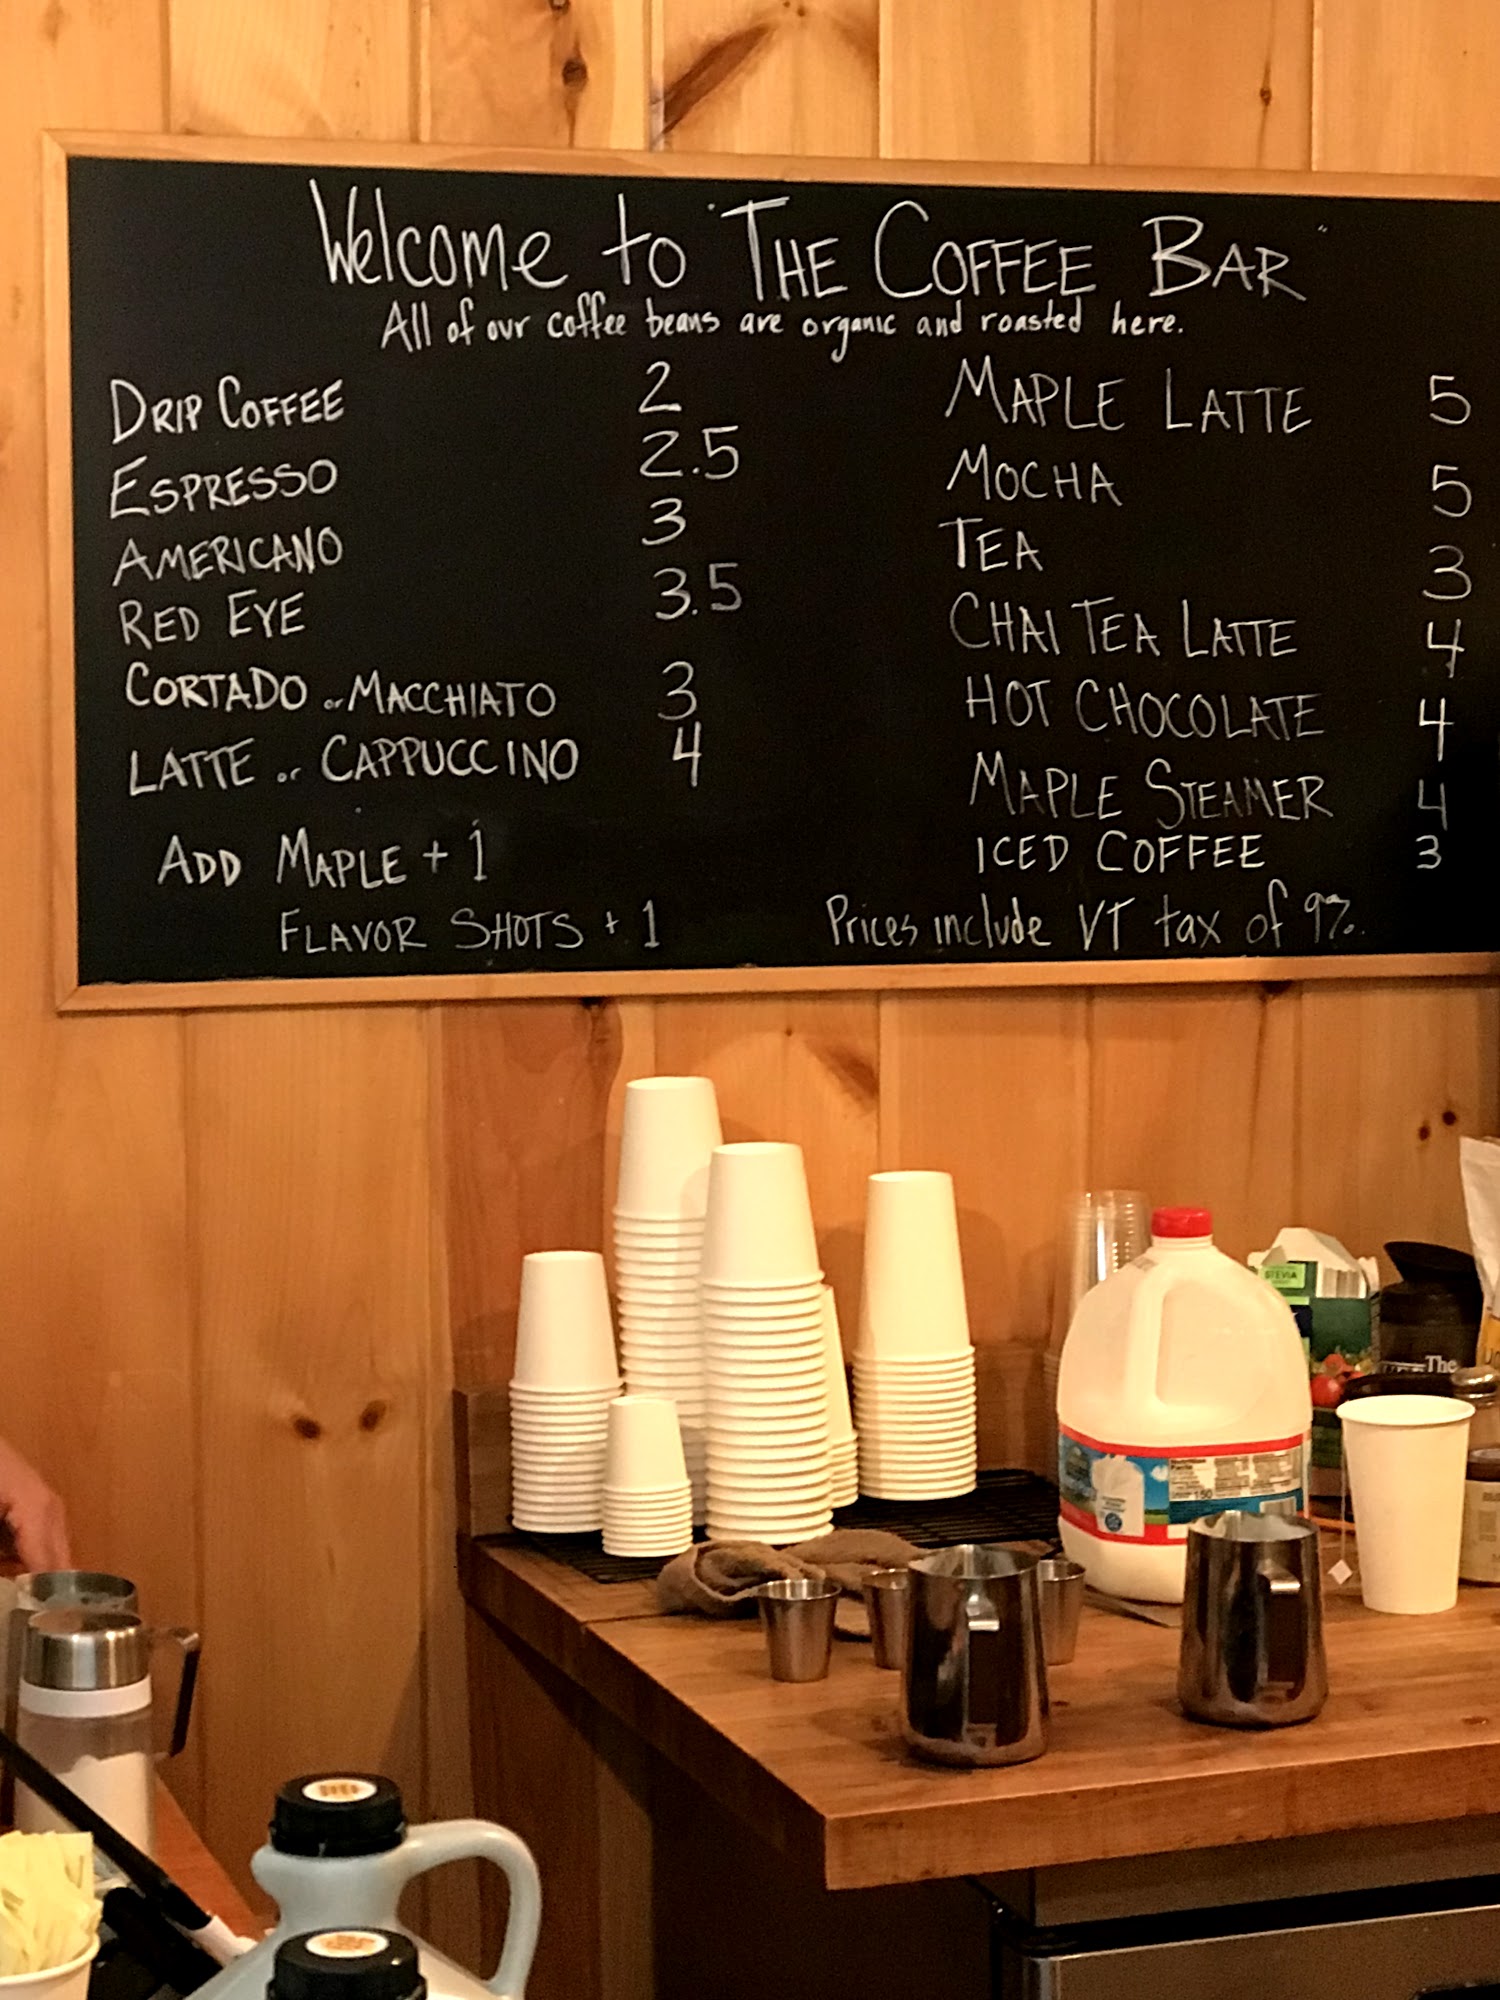 Welcome to "THE COFFEE BAR"
All of our coffee beans are organic and roasted here.
DRIP COFFEE 2
ESPRESSO 2.5
AMERICANO 3
RED EYE 3.5
CORTADO or MACCHIATO 3
LATTE or CAPPUCCINO 4
ADD MAPLE + 1
FLAVOR SHOTS + 1
MAPLE LATTE 5
MOCHA 5
TEA 3
CHAI TEA LATTE 4
HOT CHOCOLATE 4
MAPLE STEAMER 4
ICED COFFEE 3
Prices include VT tax of 9%.
STEVIA
The
Nutrition
Facts
150